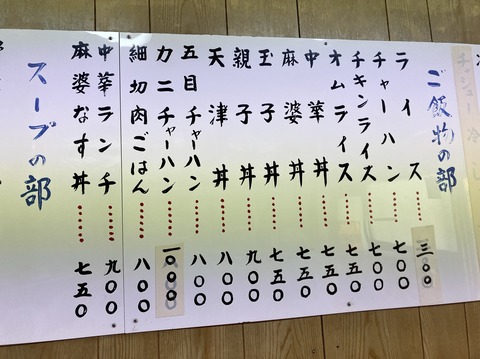 ご飯物の部
ライス……三〇〇
チャーハン……七〇〇
チキンライス……七〇〇
オムライス……七五〇
中華丼……七五〇
麻婆丼……七五〇
玉子丼……七五〇
親子丼……九〇〇
天津丼……八〇〇
五目チャーハン……八〇〇
カニチャーハン……一〇〇〇
細切肉ごはん……八〇〇
中華ランチ……九〇〇
麻婆なす丼……七五〇
スープの部